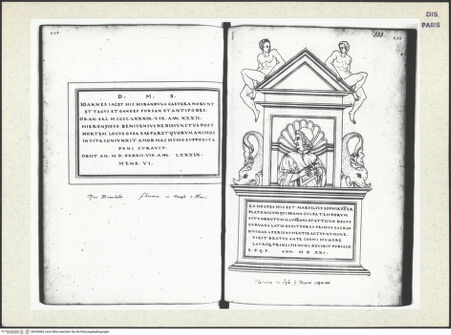 DIS
PARIS
D. M. S.
IOANNES IACET HIC MIRANDVLA CAETERA NORVNT
ET TAGVS ET GANGES FORSAN ET ANTIPODES.
OB. AN. SAL. M. CCCC. LXXXXIIII. VIX. ANN. XXXII.
HIERONYMVS BENIVENIVS NE DISIVNCTVS POST
MORTEM LOCVS OSSA SEPARET QVORVM ANIMOS
IN VITA CONIVNXIT AMOR HAC HVMO SVPPOSITA
PONI CVRAVIT.
OBIIT AN. M. D. XXXXII. VIX. ANN. LXXXIX.
MENS. VI.
EN HOSPES HIC EST MARSILIVS SOPHIAE PATER
PLATONICVM QVI DOGMA CVLPA TEMPORVM
SITV OBRVTVM ILLVSTRANS ET ATTICVM DECVS
SERVANS LATIO DEDIT FORES PRIMVS SACRAS
DIVINAE APERIENS MENTIS ACTVS NVMINE
VIXIT BEATVS ANTE COSMI MVNERE
LAVRIQ. PRINCIPIS NVNC REVIXIT PVBLICO
S. P. Q. F. ANN. M. D. XXI.